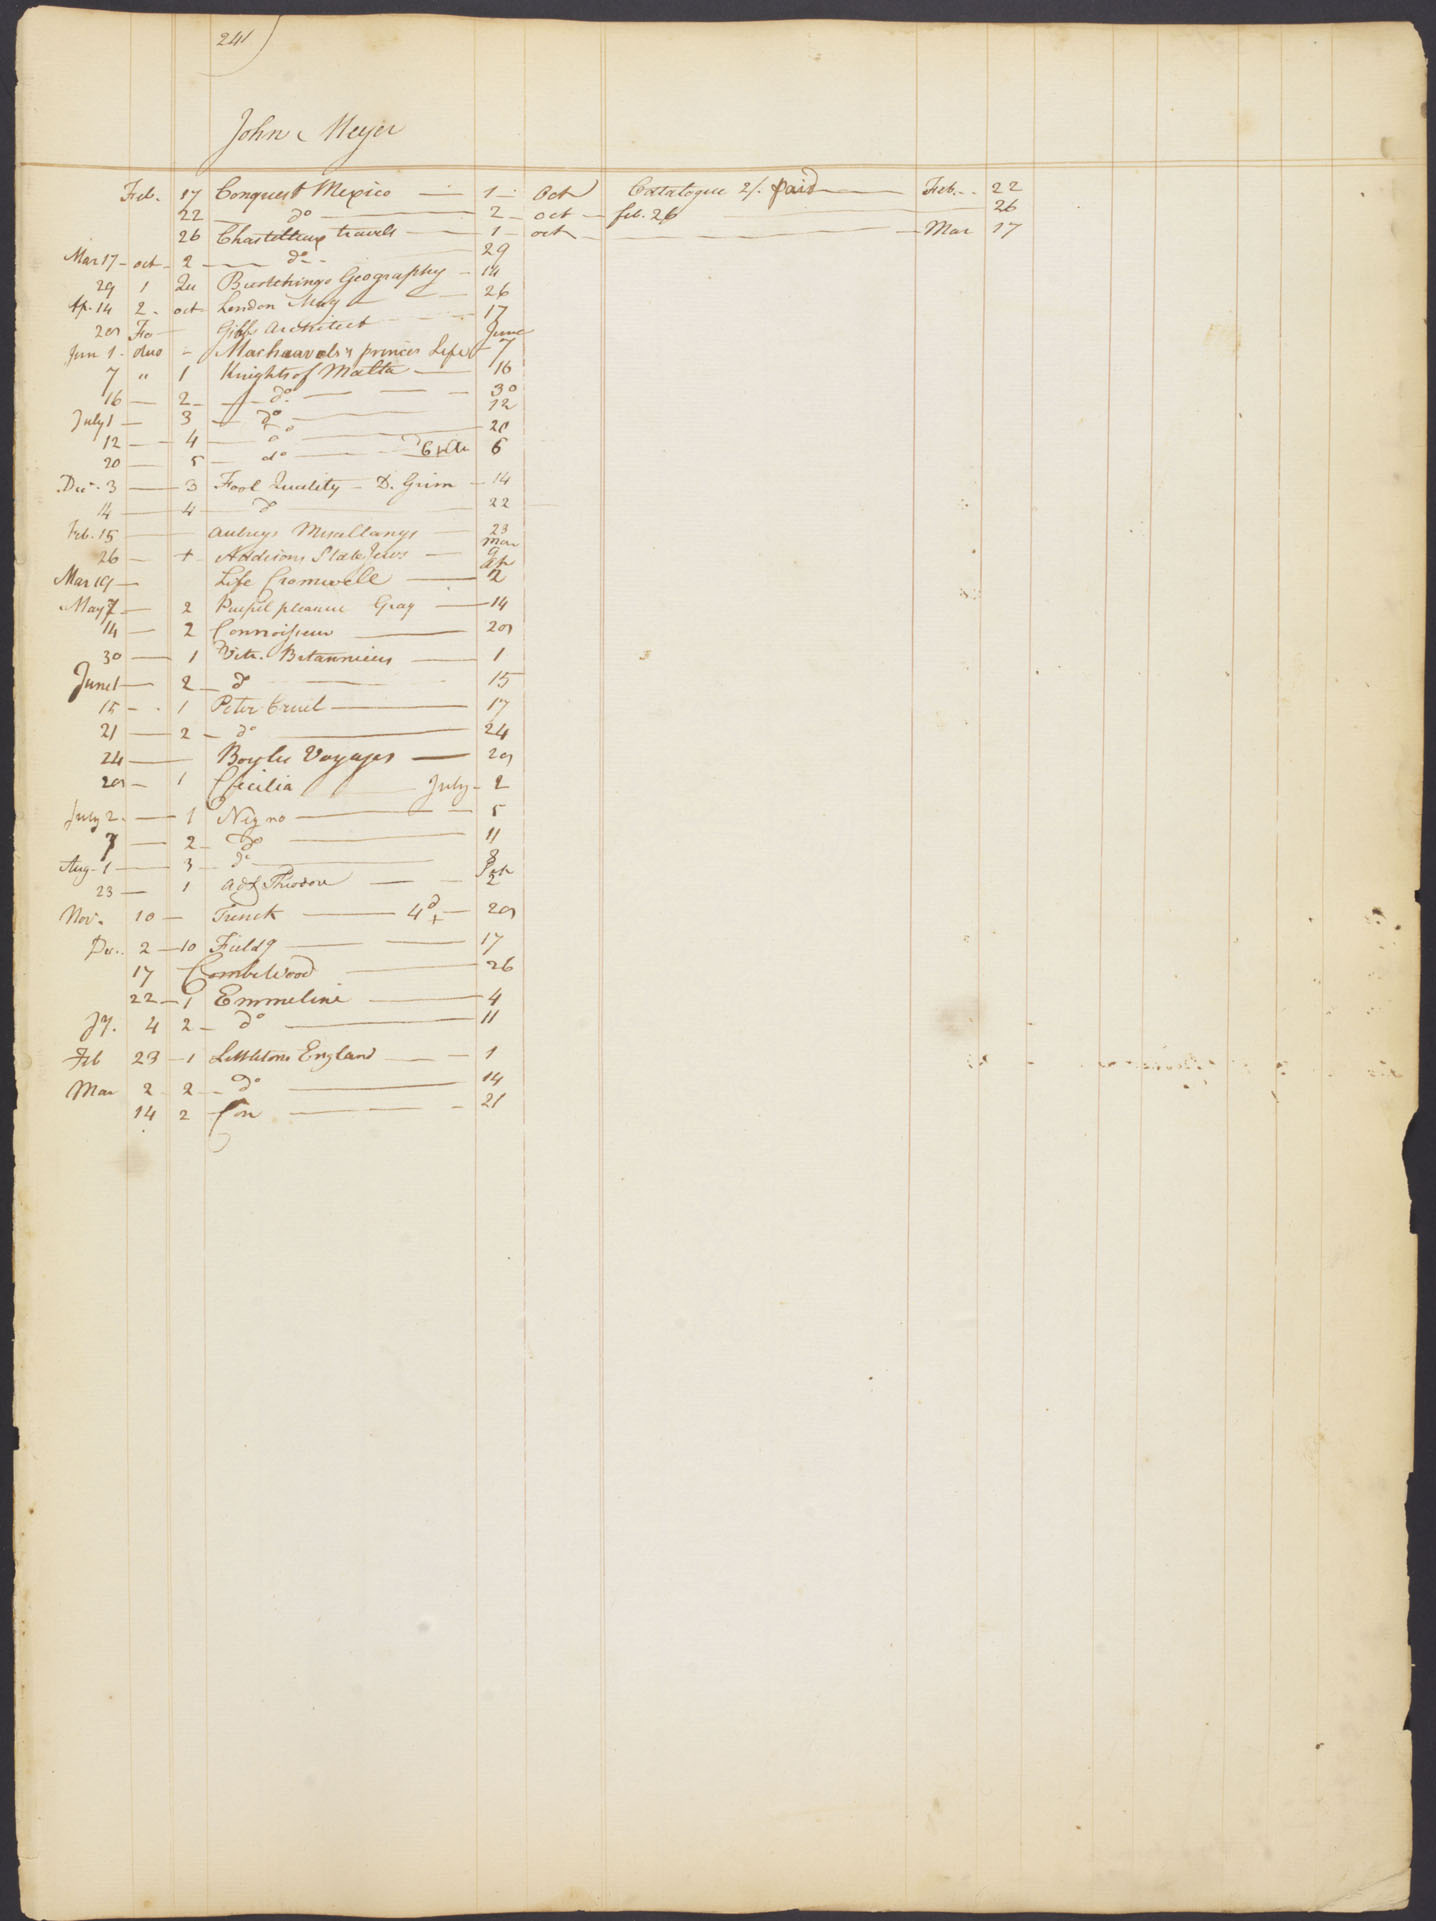 241
John Meyer
Feb. 17 Conquest Mexico — 1 — Oct Catalogue 2/. paid — Feb. 22
22 — do — 2 — oct — feb. 26 — 26
26 Chastelleux travels — 1 — oct — Mar 17
Mar 17 — oct — 2 — do — 29
29 1 Qu Buschings Geography — 14
Ap. 14 2 — oct London Mag — 26
20 Fo — Gibbs Architect — 17
Jun 1 — duo — Machiavels princes Life June 7
7 " 1 Knights of Malta — 16
16 — 2 — do — 30
July 1 — 3 — do — 12
12 — 4 — do — 20
20 — 5 — do — 6
Dec. 3 — 3 Fool Quality — D. Grim — 14
14 — 4 — do — 22
Feb. 15 — Aubreys Miscellanys — 23
26 — + Addisons State Jews — Mar 9
Mar 19 — Life Cromwell — Ap 2
May 7 — 2 Pursuit pleasure Gray — 14
14 — 2 Connoisseur — 20
30 — 1 Vitr. Britannicus — 1
June 1 — 2 — do — 15
15 — 1 Peter Cruel — 17
21 — 2 — do — 24
24 — Boyles Voyages — 29
29 — 1 Cecilia — July — 2
July 2 — 1 Negro — 5
7 — 2 — do — 11
Aug. 1 — 3 — do — 8
23 — 1 Ad & Theodore — Sep 2
Nov. 10 — Trenck — 4d + — 20
De. 2 — 10 Fieldg — 17
17 Combe Wood — 26
22 — 1 Emmeline — 4
Jy. 4 2 — do — 11
Feb 23 — 1 Littletons England — 1
Mar 2 2 — do — 14
14 2 Con — 21